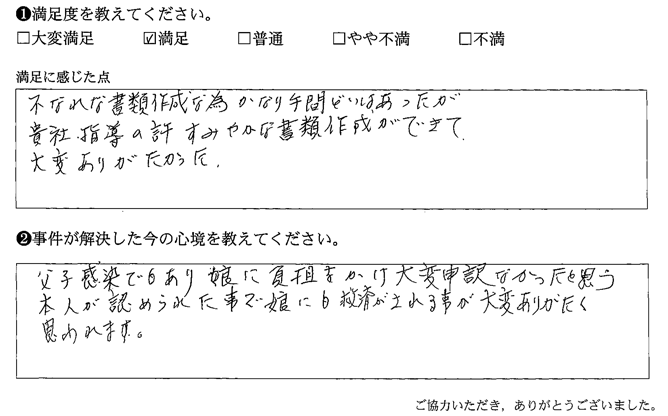 ❶満足度を教えてください。
□大変満足 ☑満足 □普通 □やや不満 □不満
満足に感じた点
不なれな書類作成な為 かなり手間どいはあったが
貴社 指導の許 すみやかな書類作成ができて
大変ありがたかった.
❷事件が解決した今の心境を教えてください。
父子感染でもあり 娘に負担をかけ大変申訳なかったと思う
本人が認められた事で娘にも救済がされる事が大変ありがたく
思われます。
ご協力いただき，ありがとうございました。